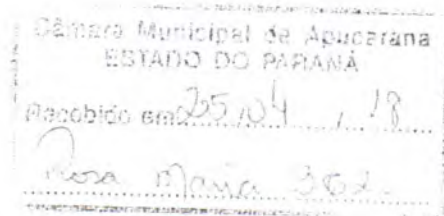 Câmara Municipal de Apucarana
ESTADO DO PARANÁ
Recebido em 25/04/18
Rosa Maria 362